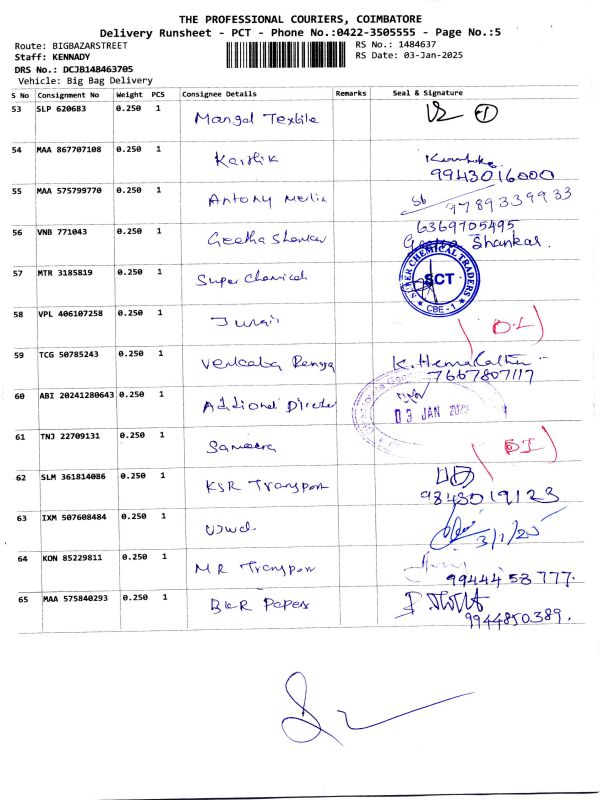 THE PROFESSIONAL COURIERS, COIMBATORE
Delivery Runsheet - PCT - Phone No.:0422-3505555 - Page No.:5
Route: BIGBAZARSTREET
RS No.: 1484637
Staff: KENNADY
RS Date: 03-Jan-2025
DRS No.: DCJB148463705
Vehicle: Big Bag Delivery
S No Consignment No Weight PCS Consignee Details Remarks Seal & Signature
53 SLP 620683 0.250 1 Mangal Textile
54 MAA 867707108 0.250 1 Karthik
9943016000
55 MAA 575799770 0.250 1 Antony
9789339933
56 VNB 771043 0.250 1 Geetha Shankar 6369705495
Geetha Shankar.
57 MTR 3185819 0.250 1 Super Chemicals SUPER CHEMICAL TRADERS SCT CBE - 1
58 VPL 406107258 1
59 TCG 50785243 0.250 1 Venkata K. Hema
7667807117
60 ABI 20241280643 0.250 1 Additional Director 03 JAN 2025
61 TNJ 22709131 0.250 1
62 SLM 361814086 0.250 1 KSR Transport
9843019123
63 IXM 507608484 0.250 1 3/1/25
64 KON 85229811 0.250 1 MR Transport
99444 58 777.
65 MAA 575840293 0.250 1 BKR Papers
9944850389.